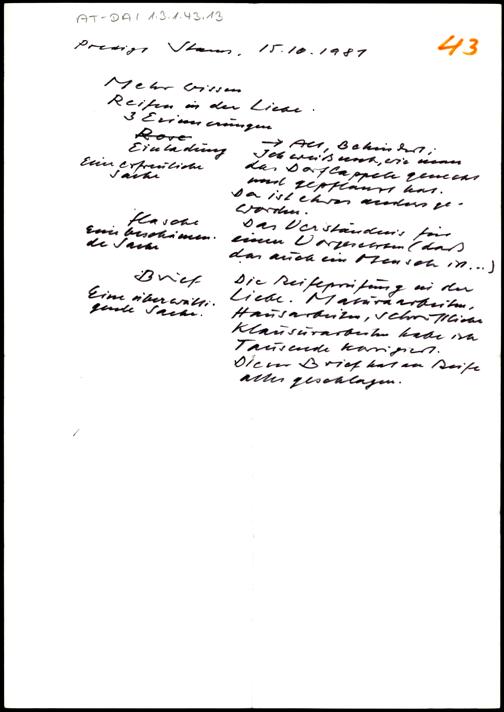 AT-DAI 1.3.1.43.13
43
Predigt Stams, 15.10.1981
Mehr wissen
Reifen in der Liebe.
3 Erinnerungen
Rose
Einladung
Eine erfreuliche
Sache
→ Alt, Behindert;
Ich weiß noch, wie man
das Dorf
und gepflanzt hat.
Da ist etwas anders ge-
worden.
Flasche
eine beschämen-
de Sache
Das Verständnis für
einen Vorgesetzten (daß
das auch ein Mensch ist...)
Brief
Eine überwälti-
gende Sache.
Die Reifeprüfung in der
Liebe. Maturaarbeiten,
Hausarbeiten, schriftliche
Klausurarbeiten habe ich
Tausende korrigiert.
Dieser Brief hat an Reife
alles geschlagen.